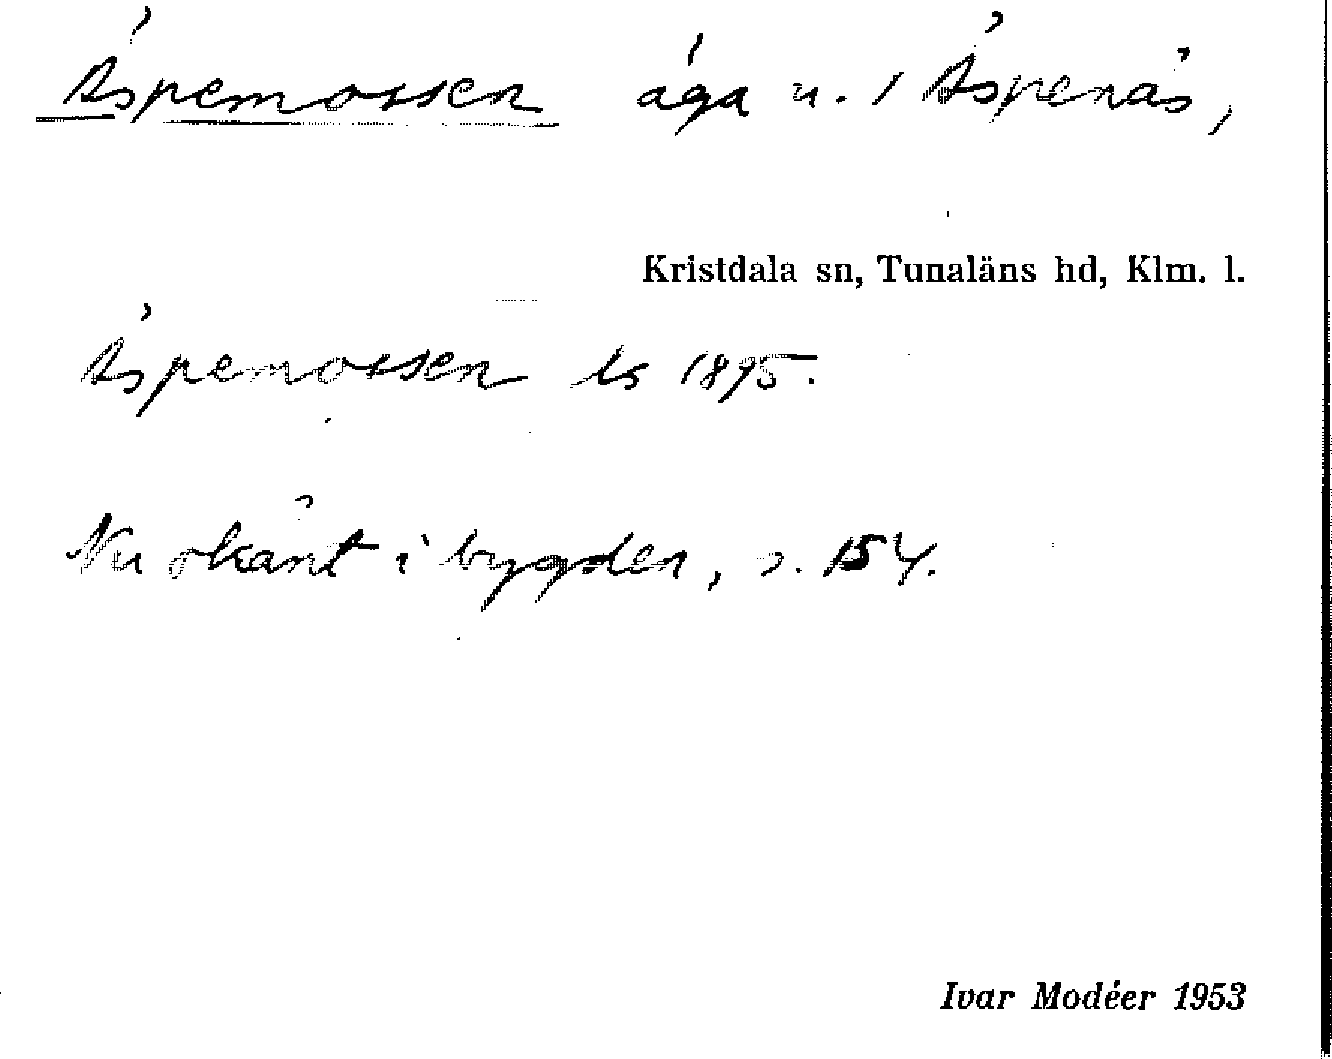 Äspemossen äga n. 1 Äspenäs,
Kristdala sn, Tunaläns hd, Klm. l.
Äspemossen ls 1895.
Nu okänt i bygden, s. 154.
Ivar Modéer 1953